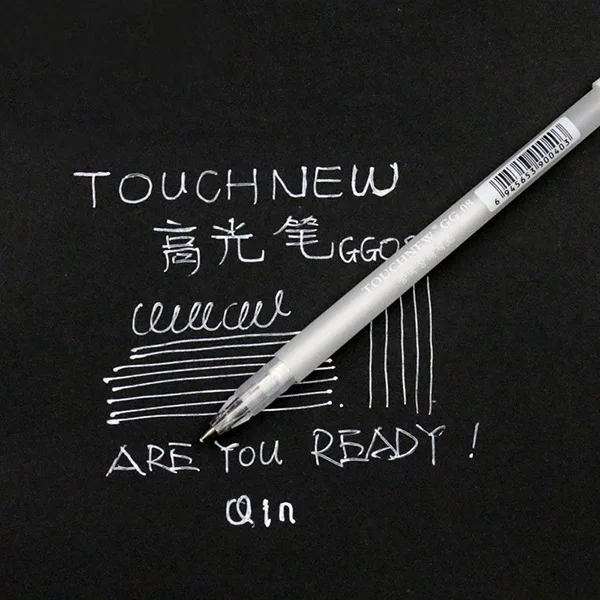 TOUCHNEW
高光笔GG08
ARE YOU READY !
Qin
TOUCHNEW GG 08
6 945653 900403